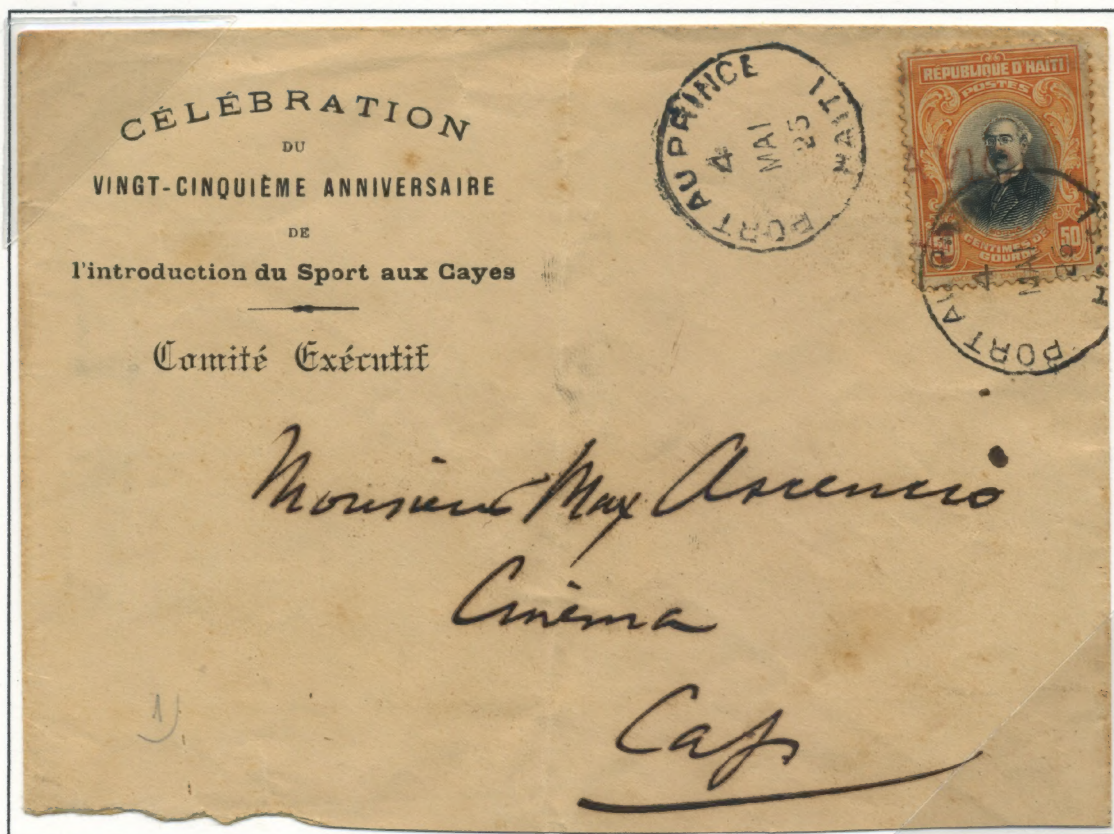 CÉLÉBRATION
DU
VINGT-CINQUIÈME ANNIVERSAIRE
DE
l'introduction du Sport aux Cayes
Comité Exécutif
PORT AU PRINCE HAITI
4
MAI
25
REPUBLIQUE D'HAITI
POSTES
CENTIMES DE
GOURDE
50
PORT AU
4
MAI
Monsieur Max Ascencio
Cinéma
Cap
1